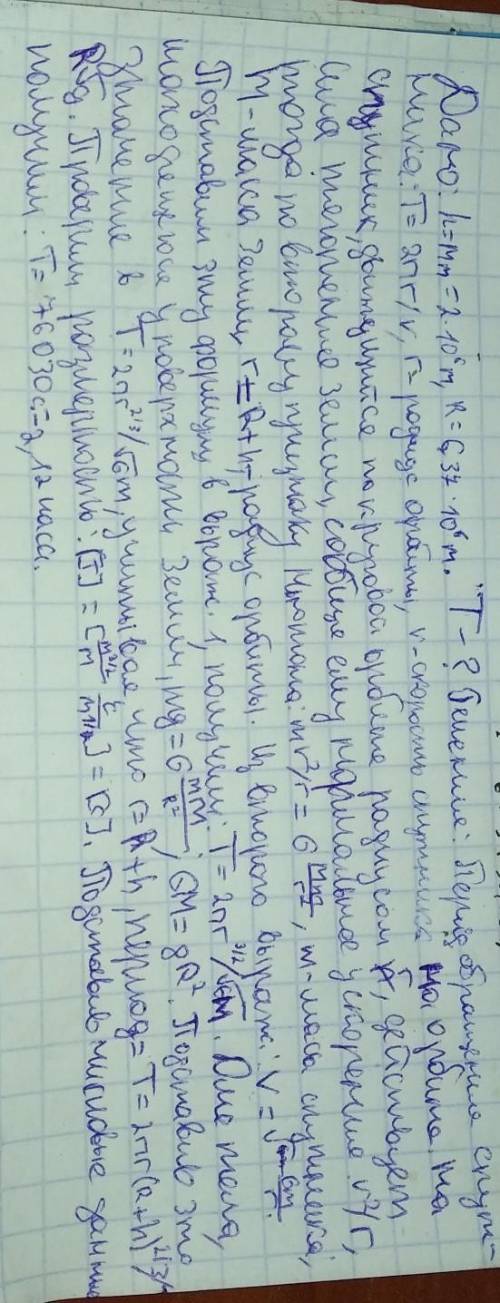 Дано: h=Мм=2·10⁶m, R=6,37·10⁶m. T-? Решение: Период обращение спут-
ника: T=2πr/v, r=радиус орбиты, v-скорость спутника на орбите. На
спутник, движещийся по круговой орбите радиусом r, действует
сила тяготение Земли, сообще ему нормальное ускорение v²/r,
тогда по второму признаку Ньютона: mv²/r=G Mm/r², m-масы спутника,
M-масса Земли, r=R+h,-радиус орбиты. Из второго выраж: v=√GM/r.
Подставим эту формулу в выраж. 1, получим: T=2πr³/²/√GM. Для тела,
находящегося у поверхности Земли, mg=G mM/R², GM=gR². Подставив это
значение в T=2πr²/³/√Gm, учитывая, что r=R+h, период= T=2πr(R+h)²/³/
R√g. Проверим размерность: [T]=[м³/² c/м м¹/²]=[c]. Подставив числовые данные
получим: T=76030c=2,12 часа.